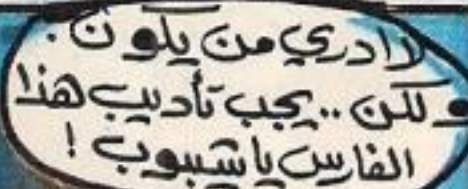 لا ادري من يكون.
ولكن .. يجب تأديب هذا
الفارس يا شيبوب !